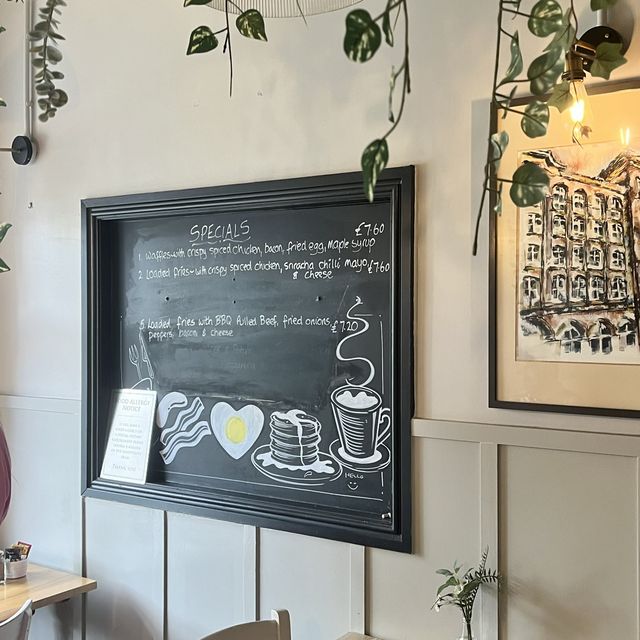 SPECIALS
£7.60
1. Waffles with crispy spiced chicken, bacon, fried egg, Maple syrup
2. Loaded fries with crispy spiced chicken, sriracha chilli mayo £7.60
& cheese
5. Loaded fries with BBQ Pulled Beef, fried onions, £7.20
peppers, bacon & cheese
FOOD ALLERGY
NOTICE
HELLO